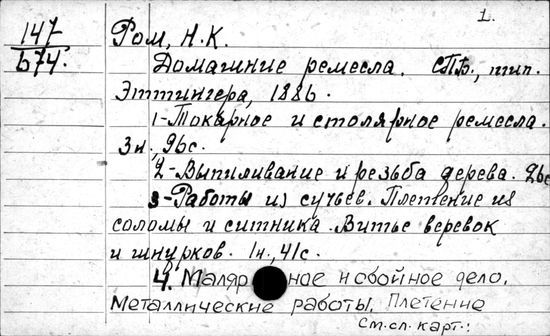 1.
147
674.
Ром, Н.К.
Домашние ремесла. СПБ., тип.
Эттингера, 1886.
1-Токарное и столярное ремесла.
3н., 96с.
2-Выпиливание и резьба дерева. 26с
3-Работы из сучьев. Плетение из
соломы и ситника. Витье веревок
и шнурков. 1н., 41с.
4. Маляр ное и обойное дело.
Металлические работы. Плетение
См. сл. карт.: